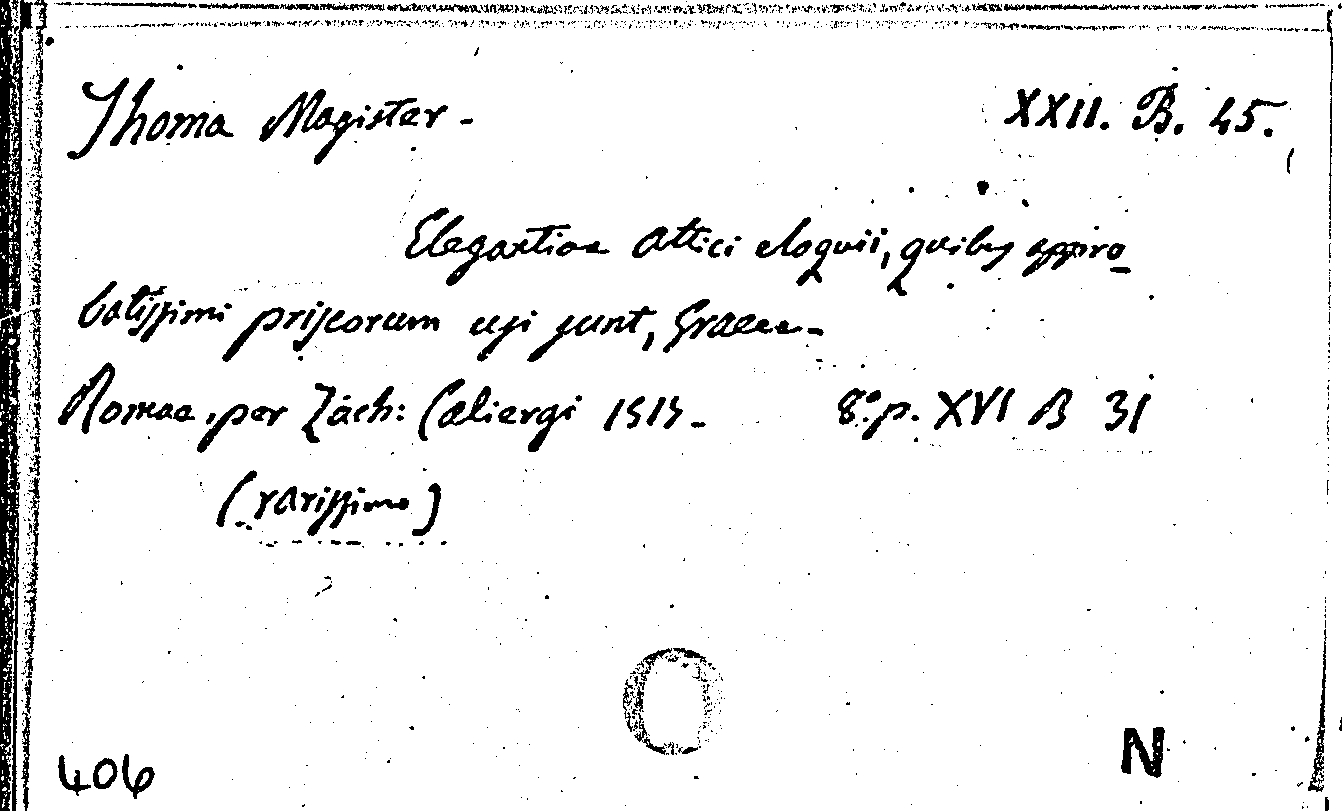 Thoma Magister - XXII. B. 45.
Elegantiae attici eloquii, quibus appro_
batissimi priscorum usi sunt, Graece -
Romae, per Zach: Caliergi 1517 - 8.° p. XVI B 31
(rarissimo)
406 N